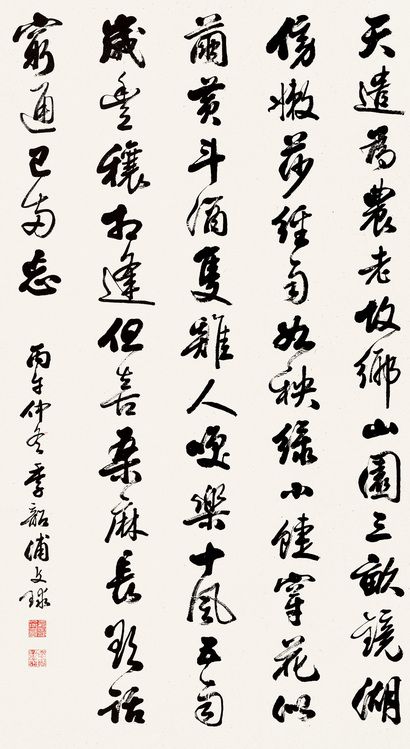 天遣為農老故鄉山園三畝鏡湖
傍嫩莎經雨如秧綠小蝶穿花似
繭黃斗酒隻雞人咲樂十風五雨
歲豐穰相逢但喜桑麻長欲話
窮通已兩忘
丙午仲冬季韶浦文球